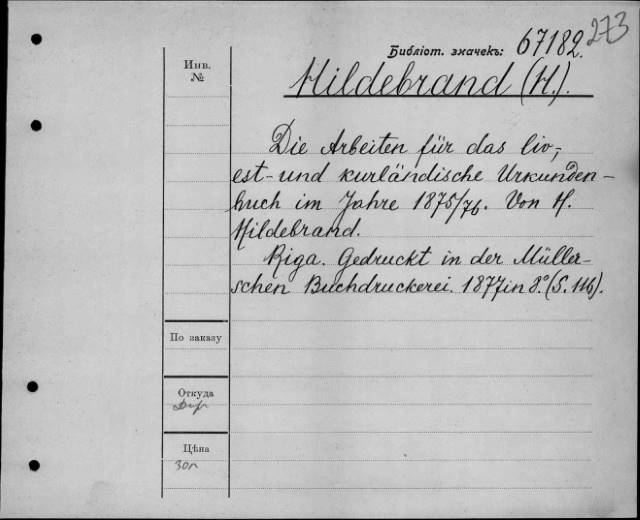 273
Библіот. значекъ: 67182.
Инв.
№
Hildebrand (H.).
Die Arbeiten für das liv-,
est- und kurländische Urkunden-
buch im Jahre 1875/76. Von H.
Hildebrand.
Riga. Gedruckt in der Müller-
schen Buchdruckerei. 1877 in 8.° (S. 116).
По заказу
Откуда
Цѣна
30к